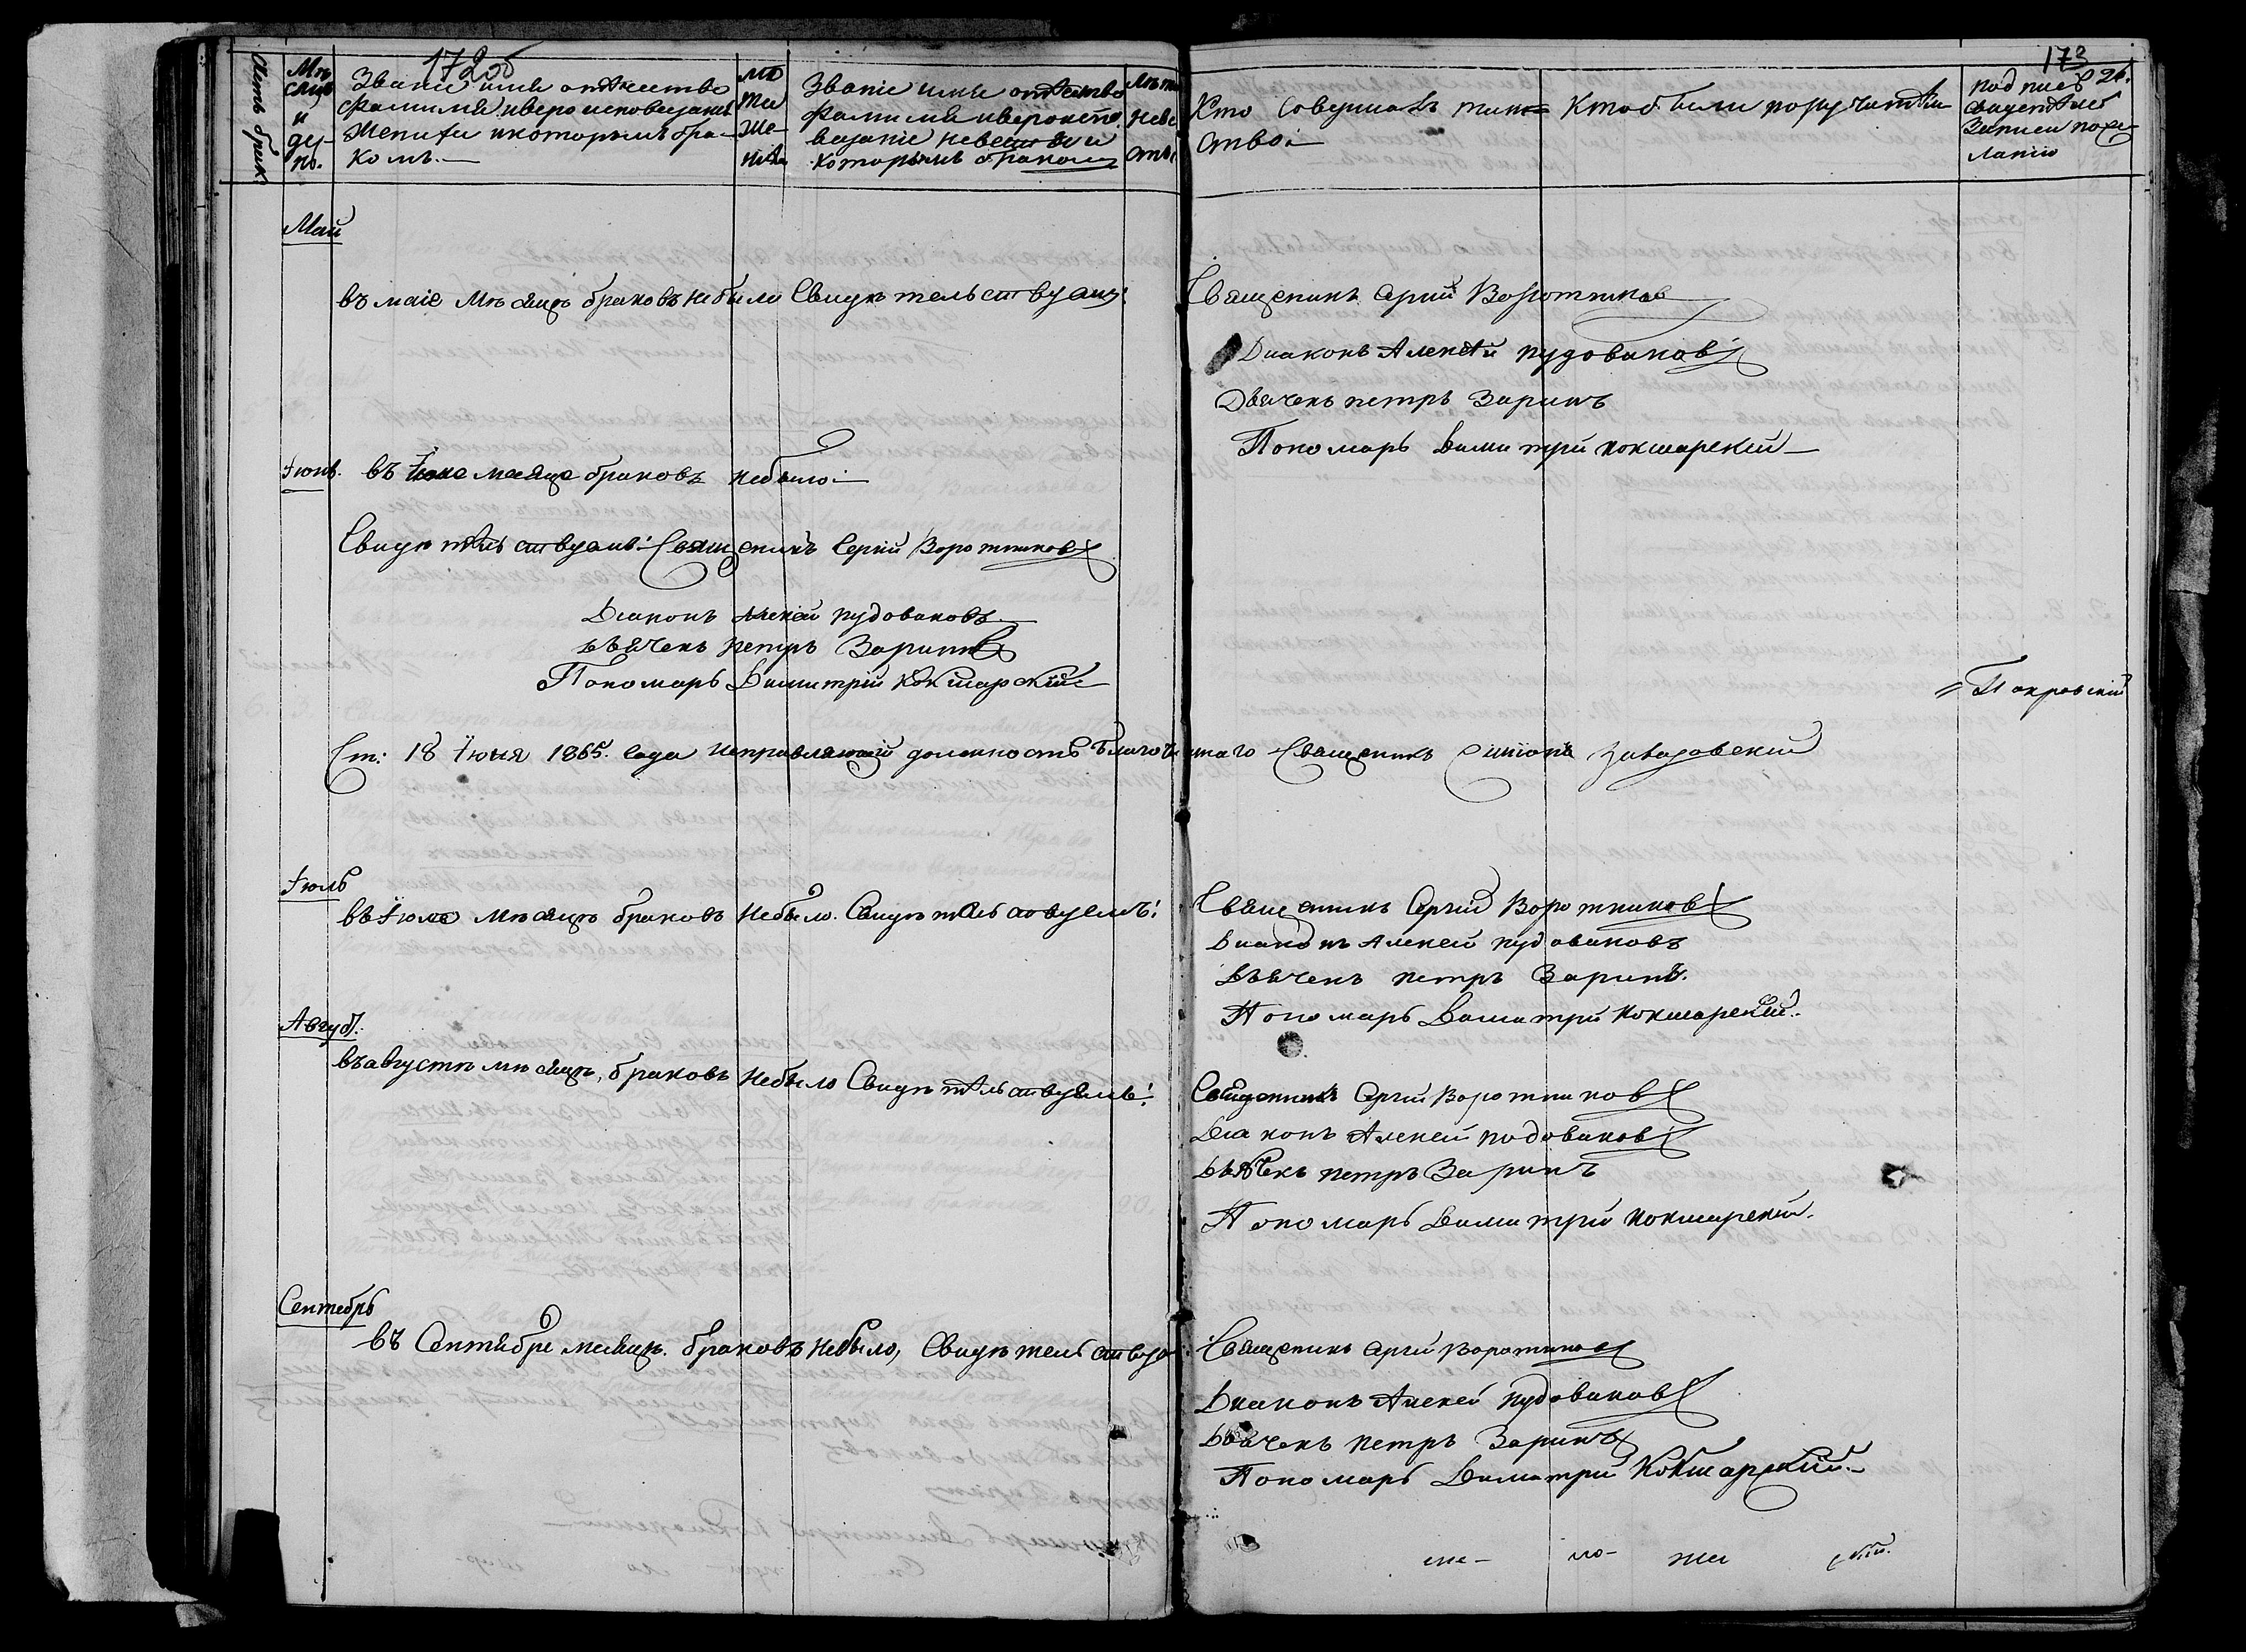 172 об
173
Счетъ брак.
Мѣ
сяцъ
и
де-
нь.
Званіе имя отчество
фамилія и вероисповеданіе
жениха и которымъ бра-
комъ.
Лѣ
та
же-
ниха
Званіе имя отчество
фамилія и вероиспо
веданіе невесты и
которымъ бракомъ
Лѣта
неве
сты
Кто совершалъ таин=
ство:
Кто были поручители
Подпись
свидетелей
записи по же
ланію
Май
въ маіе мѣсяцѣ браковъ небыло Свидѣтельствуемъ:
Священикъ Сергий Воротниковъ
Диаконъ Алексей Пудовиковъ
Дьячекъ Петръ Заринъ
Пономарь Димитрий Кокшарский
Іюнь. въ Іюне месяце браковъ небыло:
Свидѣтельствуемъ: Священикъ Сергій Воротниковъ
Діаконъ Алексей Пудовиковъ
Дьячекъ Петръ Заринъ
Пономарь Димитрій Кокшарскій
= Покровскій
Ст: 18 Іюня 1865. года исправляющій должность благочиннаго Священикъ Симіонъ Завадовский
Іюль
въ Іюле мѣсяцѣ браковъ небыло. Свидѣтельствуемъ:
Священикъ Сергий Воротниковъ
Диаконъ Алексей Пудовиковъ
Дьячекъ Петръ Заринъ.
Пономарь Димитрий Кокшарский.
Авгус.
въ августѣ мѣсяцѣ, браковъ небыло Свидѣтельствуемъ:
Священикъ Сергий Воротниковъ
Діаконъ Алексей Подовиковъ
Дьячекъ Петръ Заринъ
Пономарь Димитрий Кокшарский.
Сентебрь
въ Сентебре месяцѣ. браковъ небыло, Свидѣтельствуе
Священикъ Сергий Воротниковъ
Диаконъ Алексей Пудовиковъ
Дьячекъ Петръ Заринъ
Пономарь Димитрий Кокшарский
ло-
скій.